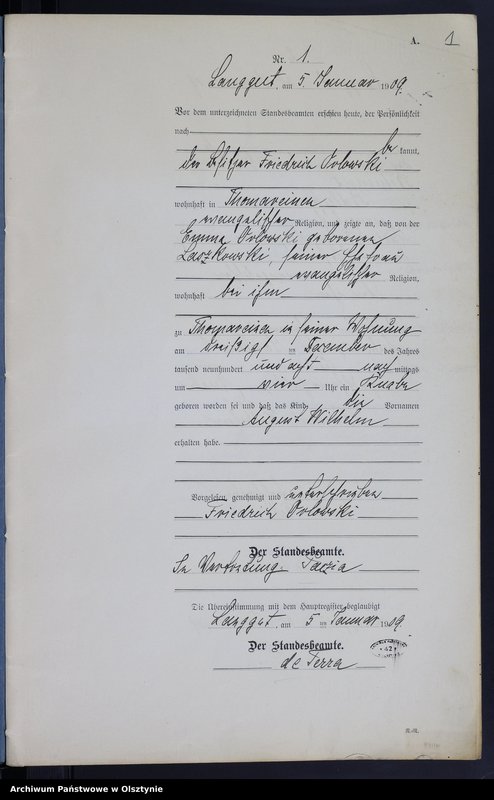 A. 1
Nr. 1.
Langgut, am 5. Januar 1909.
Vor dem unterzeichneten Standesbeamten erschien heute, der Persönlichkeit
nach be kannt,
der Besitzer Friedrich Orlowski
wohnhaft in Thomareinen
evangelischer Religion, und zeigte an, daß von der
Emma Orlowski geborenen
Laszkowski, seiner Ehefrau
evangelischer Religion,
wohnhaft bei ihm
zu Thomareinen in seiner Wohnung
am dreißigsten Dezember des Jahres
tausend neunhundert und acht nach mittags
um vier Uhr ein Knabe
geboren worden sei und daß das Kind die Vornamen
August Wilhelm
erhalten habe.
Vorgelesen, genehmigt und unterschrieben
Friedrich Orlowski
Der Standesbeamte.
In Vertretung.
Die Übereinstimmung mit dem Hauptregister beglaubigt
Langgut, am 5. Januar 1909.
Der Standesbeamte.
de Terra
42
Archiwum Państwowe w Olsztynie